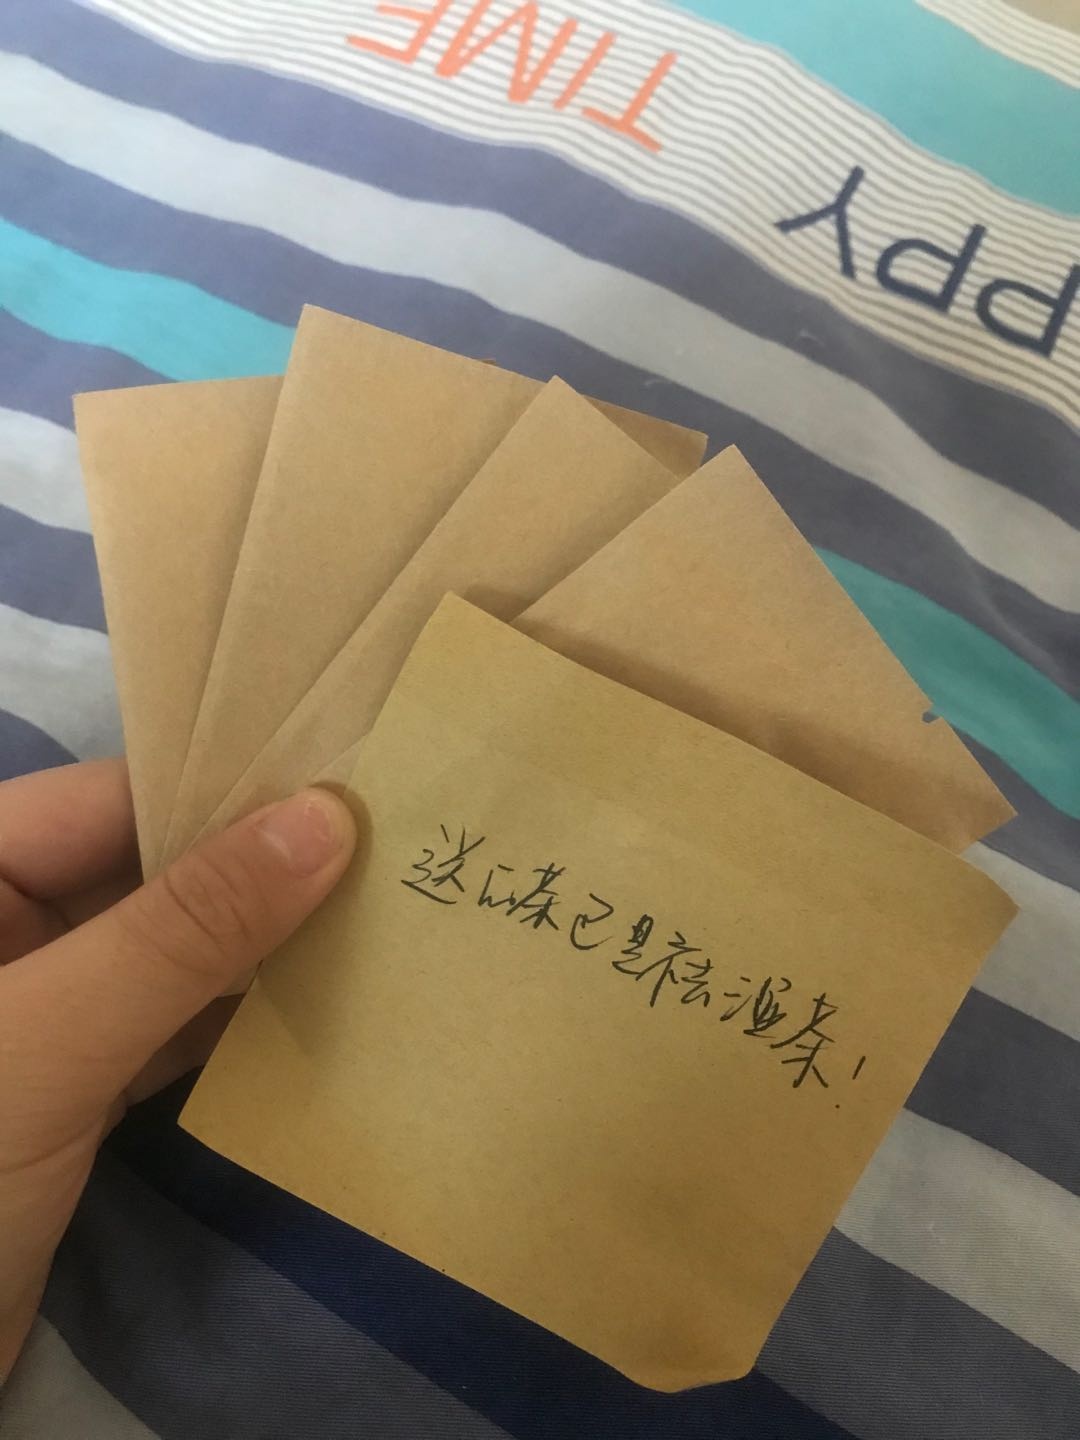 TIME
PPY
送的茶包是祛湿茶！